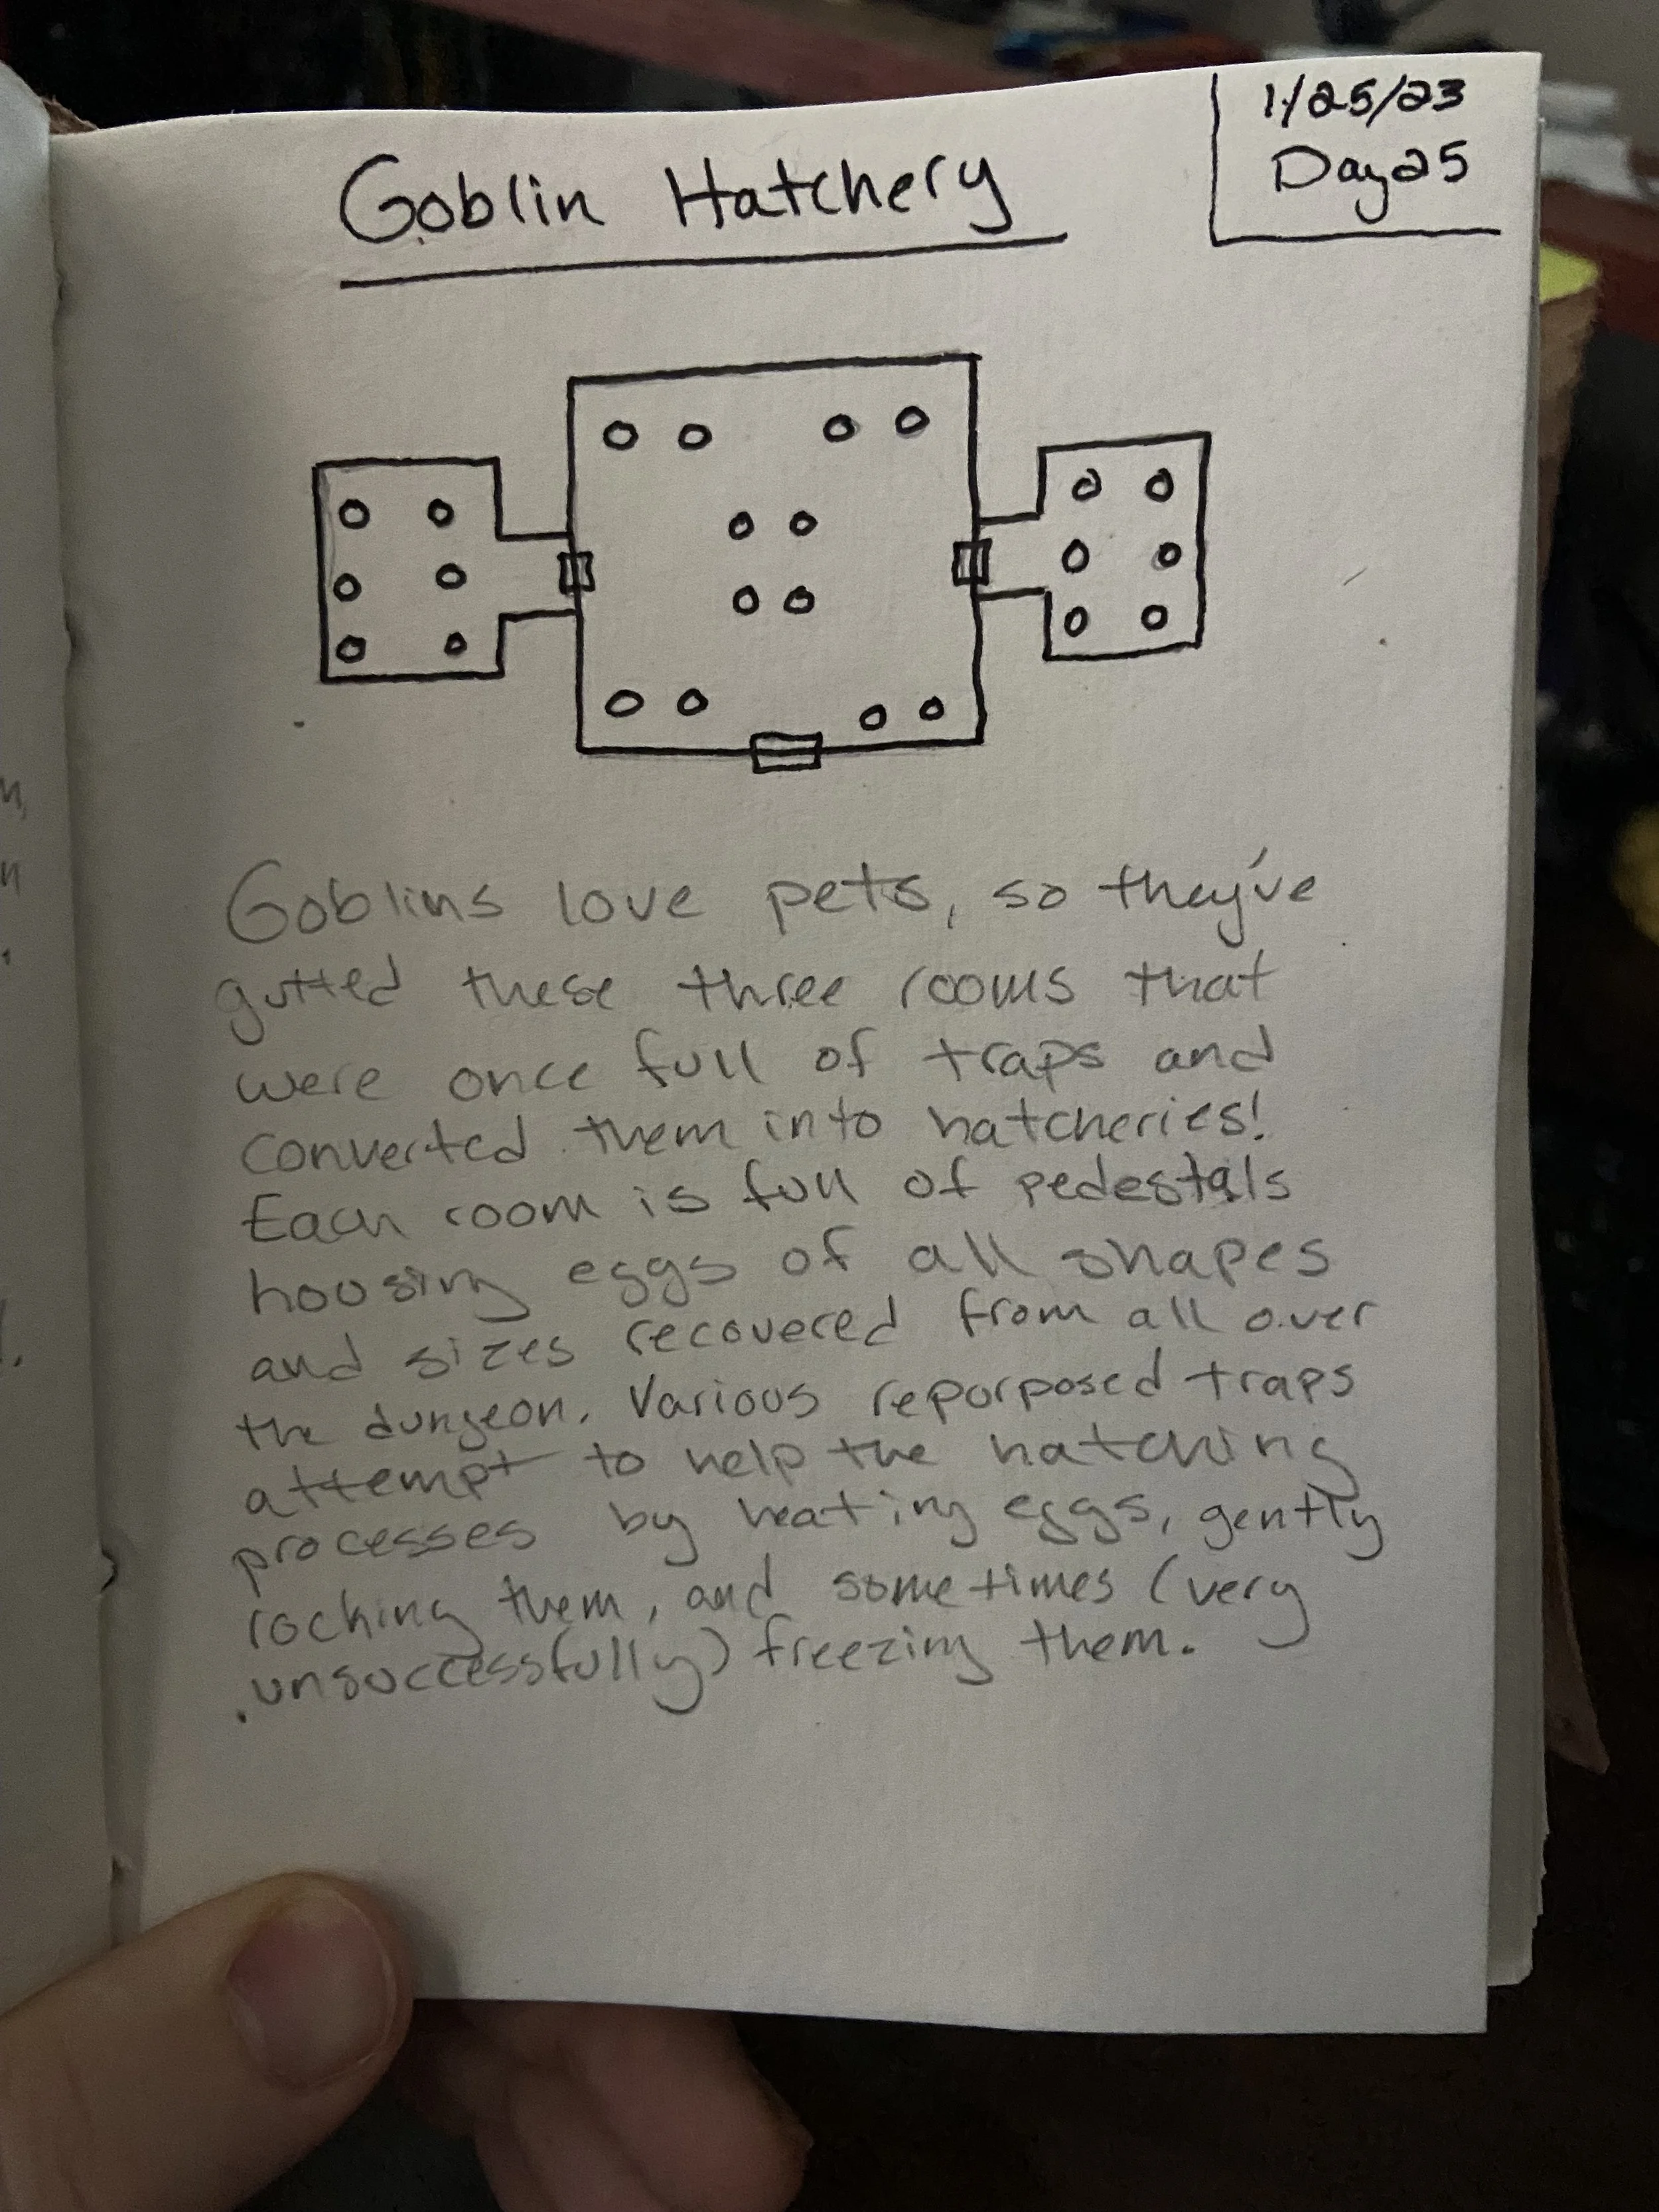 1/25/23
Day 25
Goblin Hatchery
Goblins love pets, so they've
gutted these three rooms that
were once full of traps and
converted them into hatcheries!
Each room is full of pedestals
housing eggs of all shapes
and sizes recovered from all over
the dungeon. Various repurposed traps
attempt to help the hatching
processes by heating eggs, gently
rocking them, and sometimes (very
unsuccessfully) freezing them.